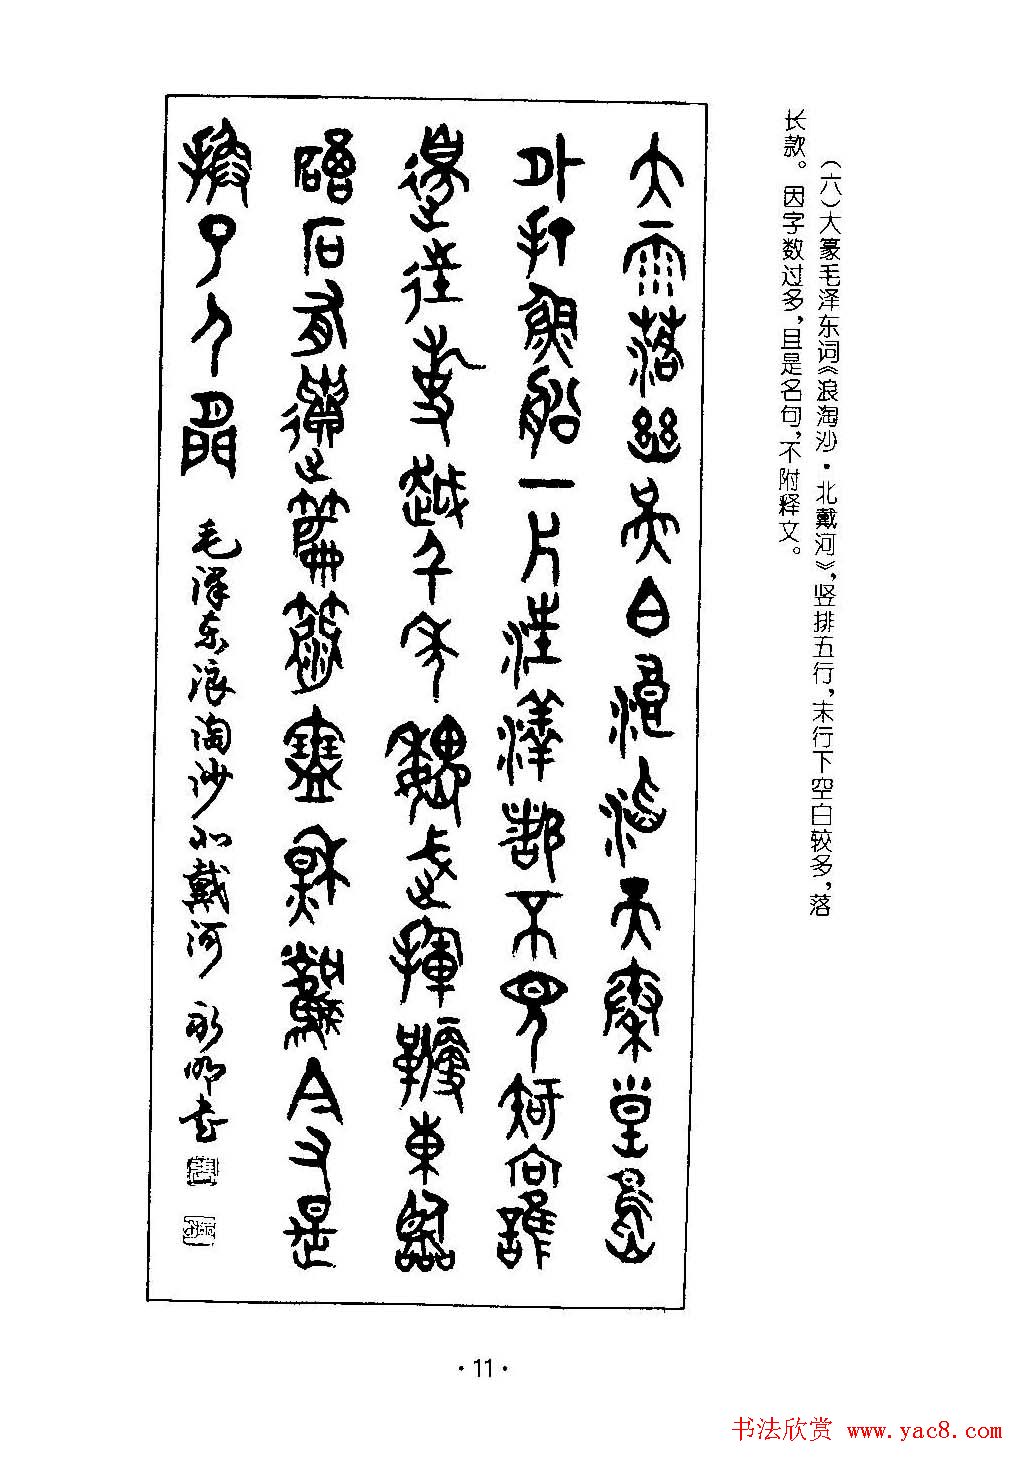 (六)大篆毛泽东词《浪淘沙·北戴河》,竖排五行,末行下空白较多,落
长款。因字数过多,且是名句,不附释文。
大雨落幽燕白浪滔天秦皇島
外打魚船一片汪洋都不見知向誰
邊往事越千年魏武揮鞭東臨
碣石有遺篇蕭瑟秋風今又是
換了人間
毛泽东浪淘沙北戴河 永明書
·11·
书法欣赏 www.yac8.com